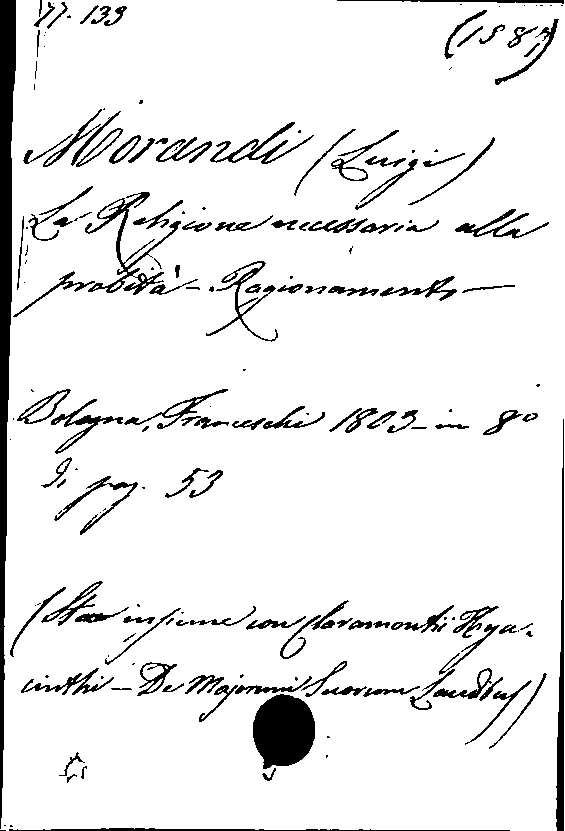 77. 133
(1587)
Morandi (Luigi)
La Religione necessaria alla
probità - Ragionamento -
Bologna, Franceschi 1803 - in 8º
di pag. 53
(Sta insieme con Claramontii Hya-
cinthi - De Majorum Suorum Laudibus)